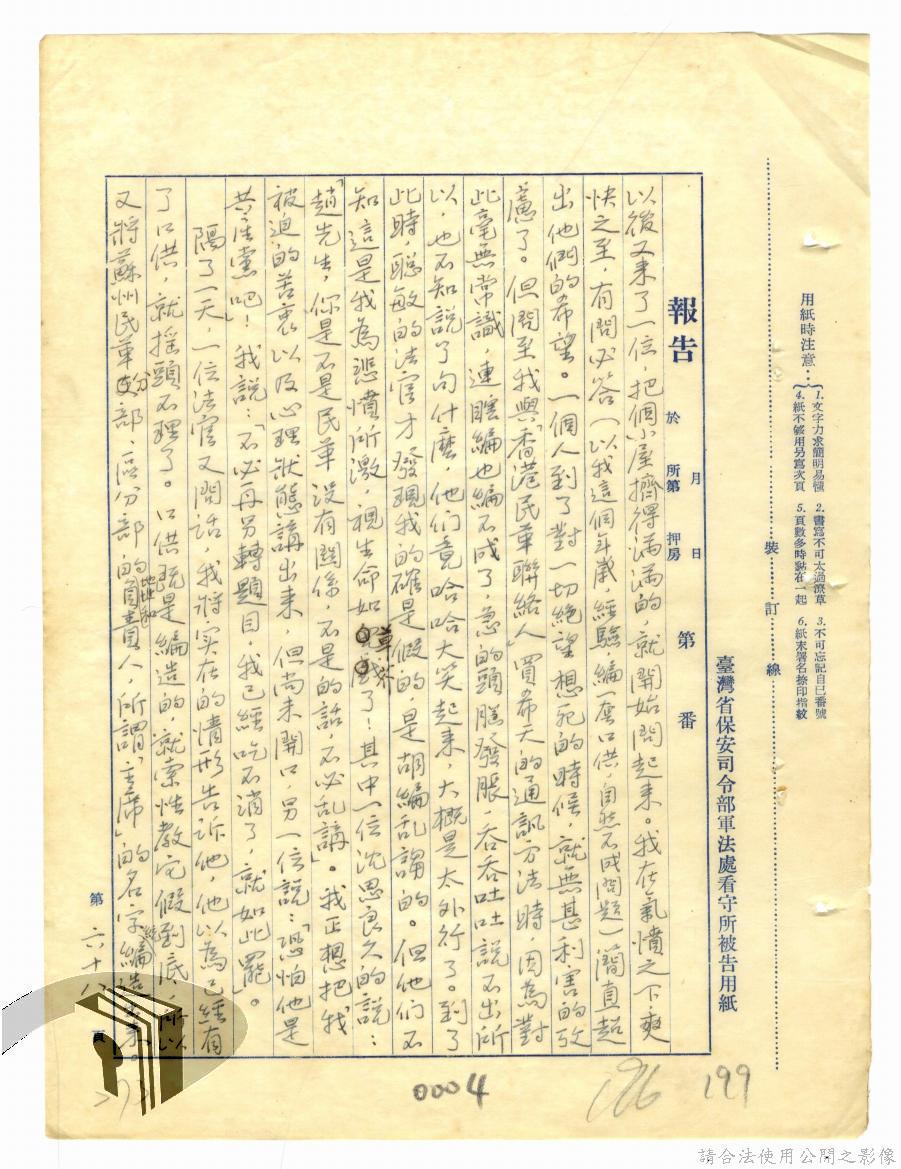 裝訂線
用紙時注意：
1. 文字力求簡明易懂 2. 書寫不可太過潦草 3. 不可忘記自已番號
4. 紙不够用另寫次頁 5. 頁數多時黏在一起 6. 紙末署名捺印指紋
臺灣省保安司令部軍法處看守所被告用紙
報告 於 月 日 所第 押房 第 番
以後又來了一位，把個小屋擠得滿滿的，就開始問起來。我在氣憤之下，爽
快之至，有問必答（以我這個年歲，經驗編一套口供，自然不成問題）簡直超
出他們的希望。一個人到了對一切絕望想死的時候，就無甚利害的攷
慮了。但問至我與「香港民革聯絡人」買希天的通訊方法時，因為對
此毫無常識，連瞎編也編不成了，急的頭腦發脹，吞吞吐吐說不出所
以，也不知說了句什麼，他們竟哈哈大笑起來，大概是太外行了。到了
此時，聰敏的法官才發現我的確是假的，是胡編乱謅的。但他們不
知這是我為悲憤所激，視生命如草芥了！其中一位沈思良久的說：
「趙先生，你是不是民革沒有關係，不是的話，不必乱講」。我正想把我
被迫的苦衷以及心理狀態講出來，但尚未開口，另一位說：「恐怕他是
共產黨吧！」我說：「不必再另轉題目，我已經吃不消了，就如此罷」。
隔了一天，一位法官又問話，我將实在的情形告訴他，他以為已經有
了口供，就摇頭不理了。口供既是編造的，就索性教它假到底，所以
又將蘇州民革分部、區分部的地址和負責人，所謂「主席」的名字編造出來。
第 六十八 頁
0004
196
199
請合法使用公開之影像